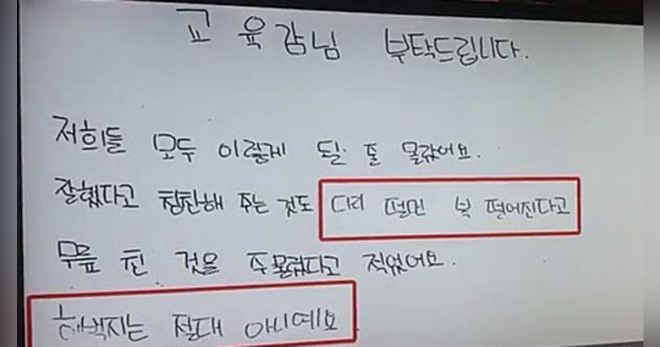 교육감님 부탁드립니다.
저희들 모두 이렇게 될 줄 몰랐어요.
잘했다고 칭찬해 주는 것도 다리 떨면 복 떨어진다고
무릎 친 것을 주물렀다고 적었어요.
허벅지는 절대 아니예요